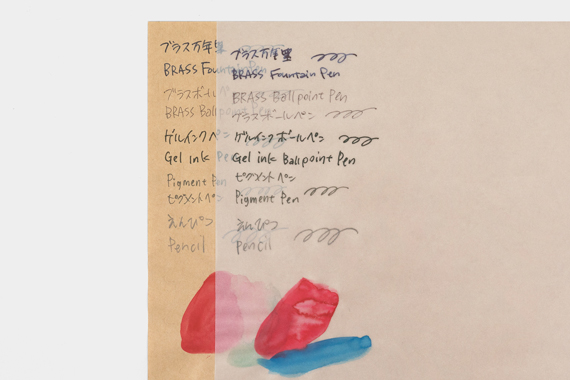 ブラス万年筆
BRASS Fountain Pen
ブラスボール
BRASS Ball
ゲルインクペン
Gel ink Pe
Pigment Pen
ピグメントペン
えんぴつ
Pencil
ブラス万年筆
BRASS Fountain Pen
BRASS Ballpoint Pen
ブラスボールペン
ゲルインクボールペン
Gel ink Ballpoint Pen
ピグメントペン
Pigment Pen
えんぴつ
Pencil